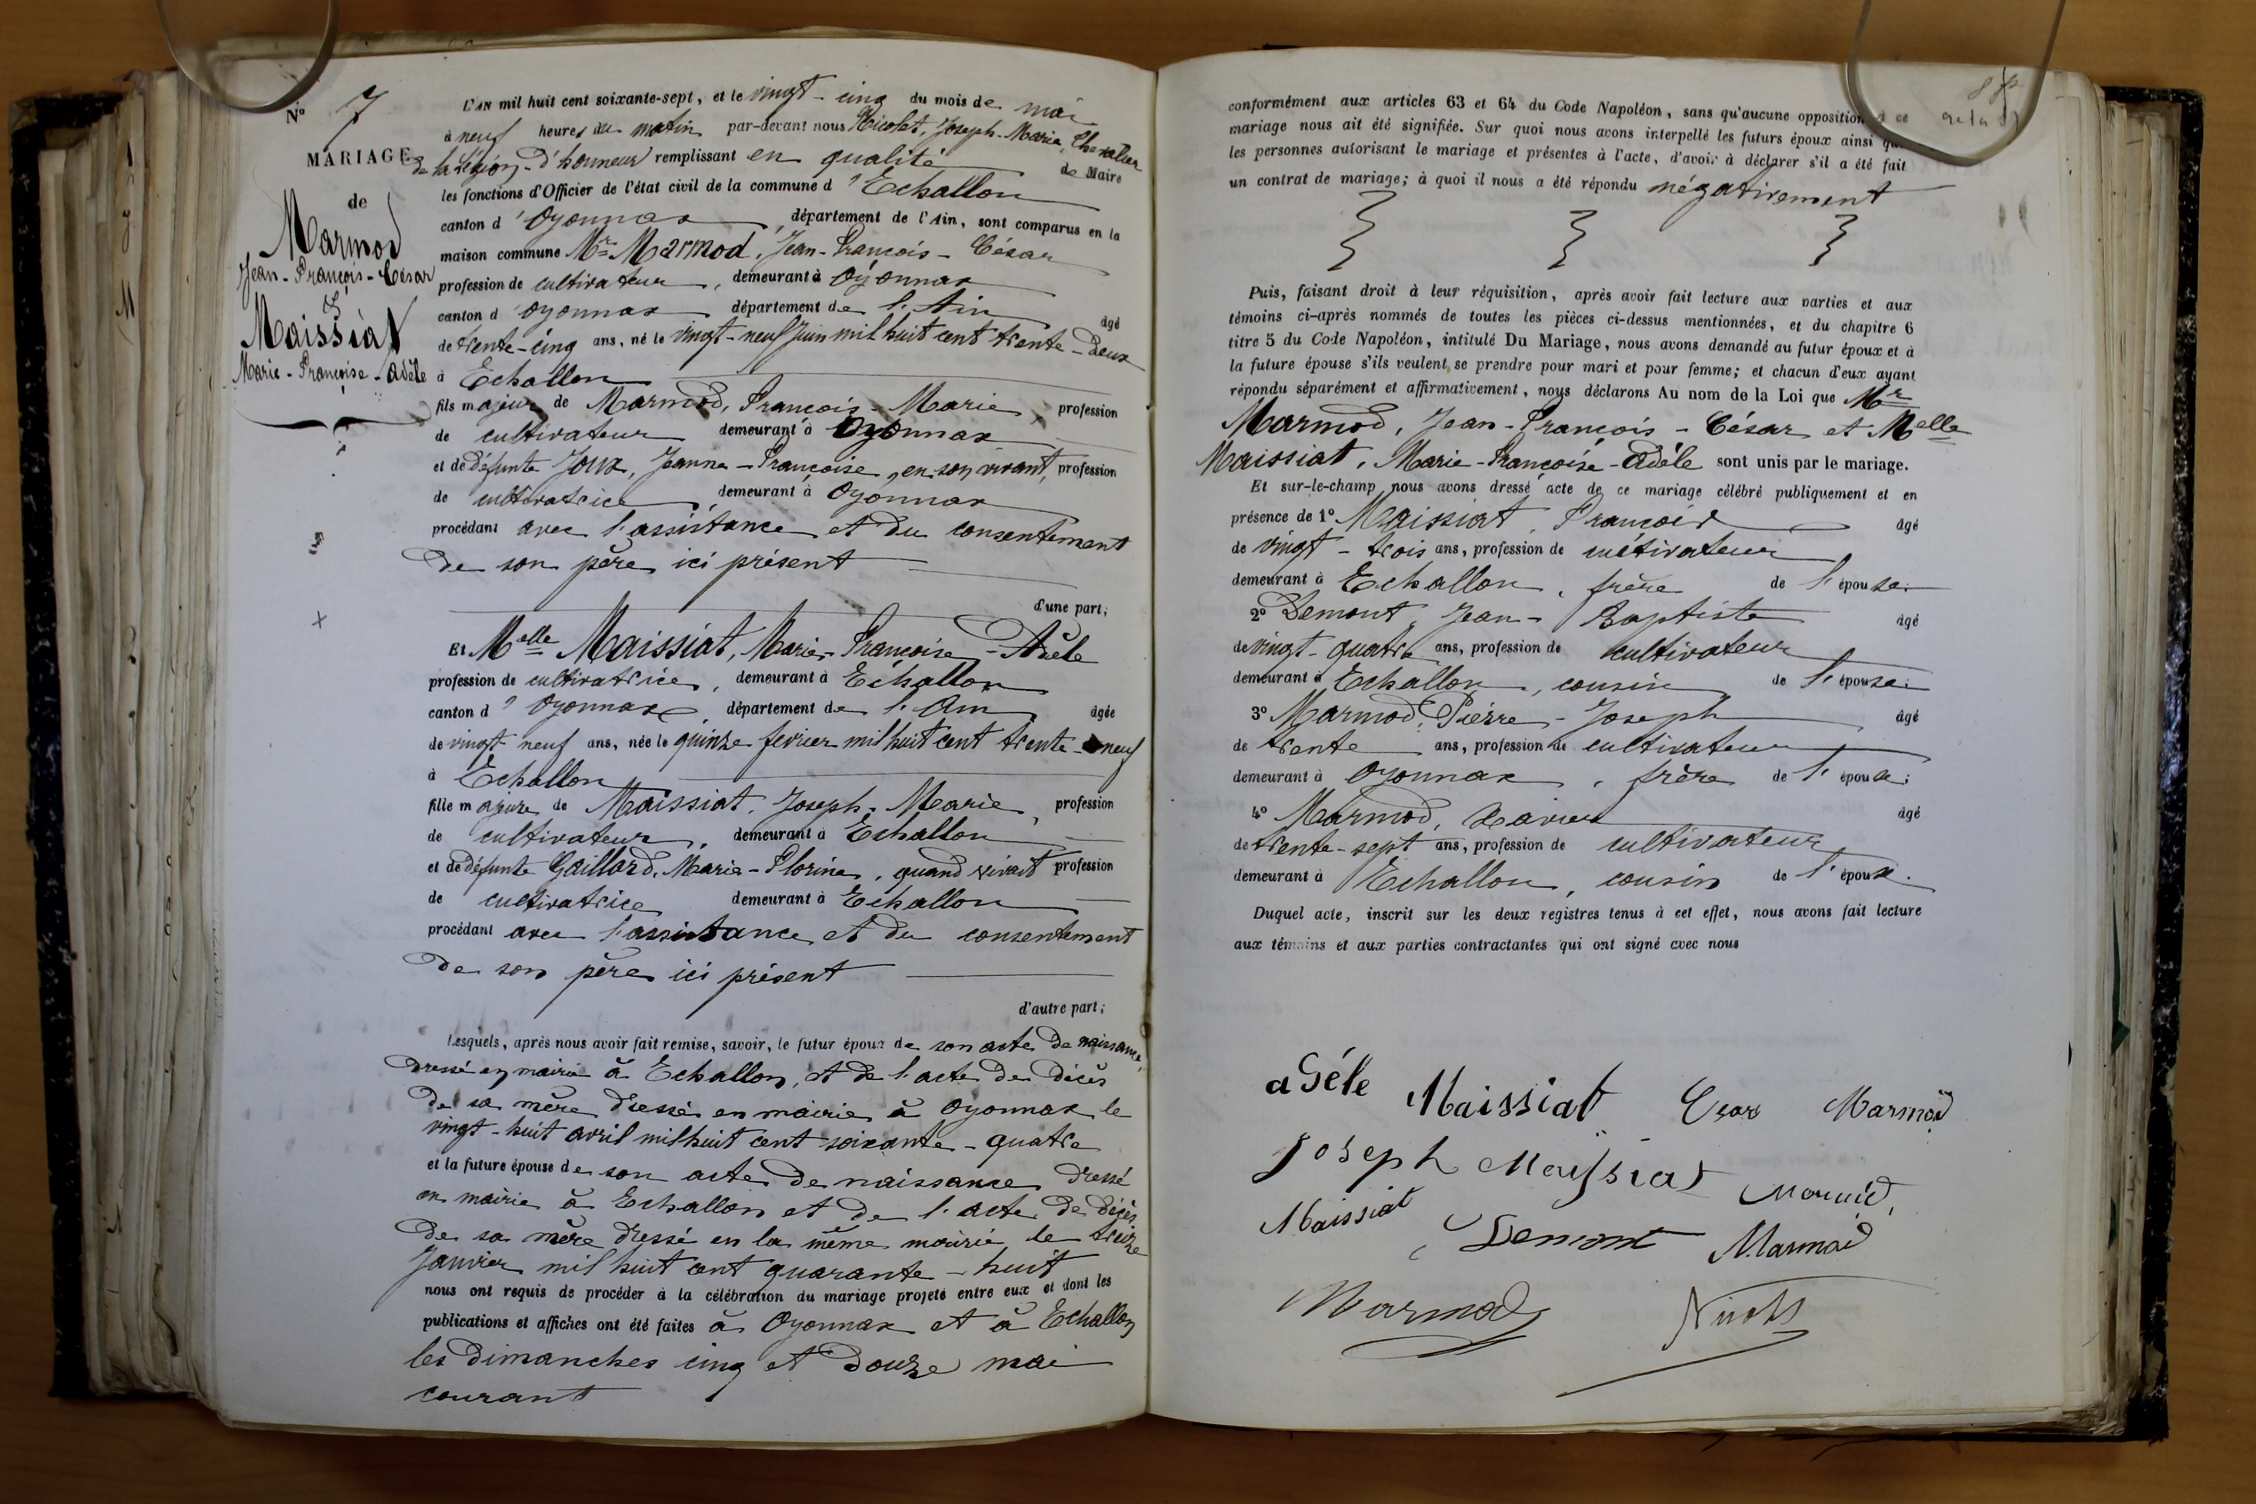 N° 7
MARIAGE
de
Marmod
Jean-François-César
&
Maissiat
Marie-Françoise-Adèle
L'AN mil huit cent soixante-sept, et le vingt-cinq du mois de mai
à neuf heures du matin par-devant nous Nicolet, Joseph-Marie, Chevalier
de la légion d'honneur remplissant en qualité de Maire
les fonctions d'Officier de l'état civil de la commune d'Echallon
canton d'Oyonnax, département de l'Ain, sont comparus en la
maison commune Mr Marmod, Jean-François-César
profession de cultivateur, demeurant à Oyonnax
canton d'Oyonnax département de l'Ain âgé
de trente-cinq ans, né le vingt-neuf Juin mil huit cent trente-deux
à Echallon
fils majeur de Marmod, François-Marie, profession
de cultivateur demeurant à Oyonnax
et de défunte Joux, Jeanne-Françoise, en son vivant, profession
de cultivatrice, demeurant à Oyonnax
procédant avec l'assistance et du consentement
de son père ici présent
d'une part;
Et Melle Maissiat, Marie-Françoise-Adèle
profession de cultivatrice, demeurant à Echallon
canton d'Oyonnax, département de l'Ain âgée
de vingt-neuf ans, née le quinze fevrier mil huit cent trente-neuf
à Echallon
fille majeure de Maissiat, Joseph-Marie, profession
de cultivateur, demeurant à Echallon
et de défunte Gaillard, Marie-Florine, quand vivait profession
de cultivatrice demeurant à Echallon
procédant avec l'assistance et du consentement
de son père ici présent
d'autre part;
Lesquels, après nous avoir fait remise, savoir, le futur époux de son acte de naissance,
dressé en mairie à Echallon, et de l'acte de décès
de sa mère dressé en mairie à Oyonnax le
vingt-huit avril mil huit cent soixante-quatre
et la future épouse de son acte de naissance dressé
en mairie à Echallon et de l'acte de décès
de sa mère dressé en la même mairie le treize
Janvier mil huit cent quarante-huit
nous ont requis de procéder à la célébration du mariage projeté entre eux et dont les
publications et affiches ont été faites à Oyonnax et à Echallon
les dimanches cinq et douze mai
courant
conformément aux articles 63 et 64 du Code Napoléon, sans qu'aucune opposition à ce
mariage nous ait été signifiée. Sur quoi nous avons interpellé les futurs époux ainsi que
les personnes autorisant le mariage et présentes à l'acte, d'avoir à déclarer s'il a été fait
un contrat de mariage; à quoi il nous a été répondu négativement
Puis, faisant droit à leur réquisition, après avoir fait lecture aux parties et aux
témoins ci-après nommés de toutes les pièces ci-dessus mentionnées, et du chapitre 6
titre 5 du Code Napoléon, intitulé Du Mariage, nous avons demandé au futur époux et à
la future épouse s'ils veulent se prendre pour mari et pour femme; et chacun d'eux ayant
répondu séparément et affirmativement, nous déclarons Au nom de la Loi que Mr
Marmod, Jean-François-César et Melle
Maissiat, Marie-Françoise-Adèle sont unis par le mariage.
Et sur-le-champ nous avons dressé acte de ce mariage célébré publiquement et en
présence de 1° Maissiat, François âgé
de vingt-trois ans, profession de cultivateur
demeurant à Echallon, frère de l'épouse.
2° Demont, Jean-Baptiste âgé
de vingt-quatre ans, profession de cultivateur
demeurant à Echallon, cousin de l'épouse;
3° Marmod, Pierre-Joseph âgé
de trente ans, profession de cultivateur
demeurant à Oyonnax, frère de l'époux;
4° Marmod, Xavier âgé
de trente-sept ans, profession de cultivateur
demeurant à Echallon, cousin de l'époux.
Duquel acte, inscrit sur les deux registres tenus à cet effet, nous avons fait lecture
aux témoins et aux parties contractantes qui ont signé avec nous
adéle Maissiat César Marmod
Joseph Maissiat Marmod,
Maissiat Demont Marmod
Marmod Nicolet